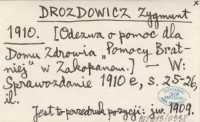 DROZDOWICZ Zygmunt
1910. [Odezwa o pomoc dla
Domu Zdrowia „Pomocy Brat-
niej" w Zakopanem.] — W:
Sprawozdanie 1910 e, s. 25-26,
il.
Jest to przedruk pozycji: jw. 1909.